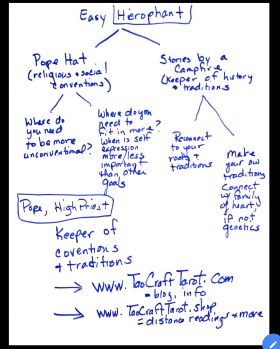 Easy Hierophant
Pope Hat
(religious & social
conventions)
Stories by a
Campfire
(Keeper of history
& traditions
Where do
you need
to be more
unconventional?
Where do you
need to
fit in more?
When is self
expression
more/less
important
than other
goals
Reconnect
to your
roots &
traditions
Make
your own
traditions
Connect
w/ family
of heart
if not
genetics
Pope, High Priest
Keeper of
coventions
& traditions
→ www.TaoCraftTarot.com
= blog, info
→ www.TaoCraftTarot.shop
= distance readings & more